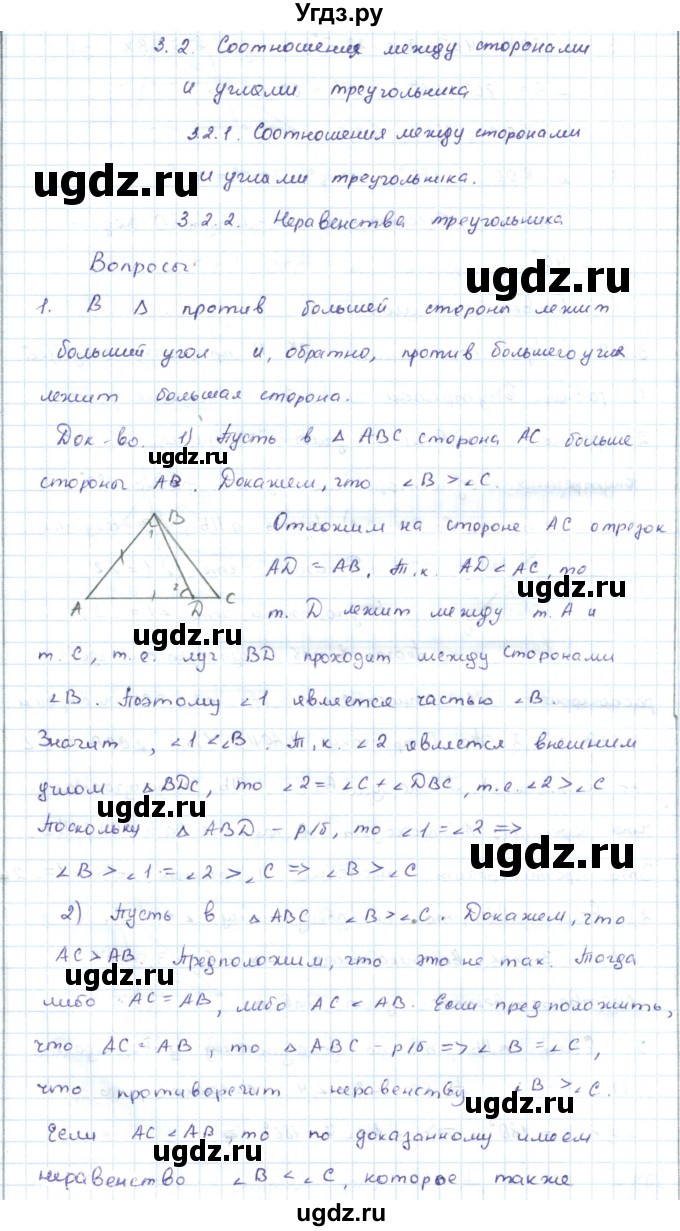 Угдз.ру
3.2. Соотношения между сторонами
и углами треугольника
3.2.1. Соотношения между сторонами
и углами треугольника.
ugdz.ru
3.2.2. Неравенства треугольника
Вопросы:
ugdz.ru
1. В Δ против большей стороны лежит
больший угол и, обратно, против большего угла
лежит большая сторона.
Док-во. 1) Пусть в Δ ABC сторона AC больше
ugdz.ru
стороны AB. Докажем, что ∠B > ∠C.
B
1
2
A D C
Отложим на стороне AC отрезок
AD = AB. Т.к. AD < AC, то
ugdz.ru
т. D лежит между т. A и
т. C, т.е. луч BD проходит между сторонами
∠B. Поэтому ∠1 является частью ∠B.
Значит, ∠1 < ∠B. Т.к. ∠2 является внешним
углом Δ BDC, то ∠2 = ∠C + ∠DBC, т.е. ∠2 > ∠C
ugdz.ru
Поскольку Δ ABD – р/б, то ∠1 = ∠2 =>
ugdz.ru
∠B > ∠1 = ∠2 > ∠C => ∠B > ∠C
2) Пусть в Δ ABC ∠B > ∠C. Докажем, что
AC > AB. Предположим, что это не так. Тогда
ugdz.ru
либо AC = AB, либо AC < AB. Если предположить,
что AC = AB, то Δ ABC – р/б => ∠B = ∠C,
что противоречит неравенству ∠B > ∠C.
ugdz.ru
Если AC < AB, то по доказанному имеем
ugdz.ru
неравенство ∠B < ∠C, которое также
ugdz.ru